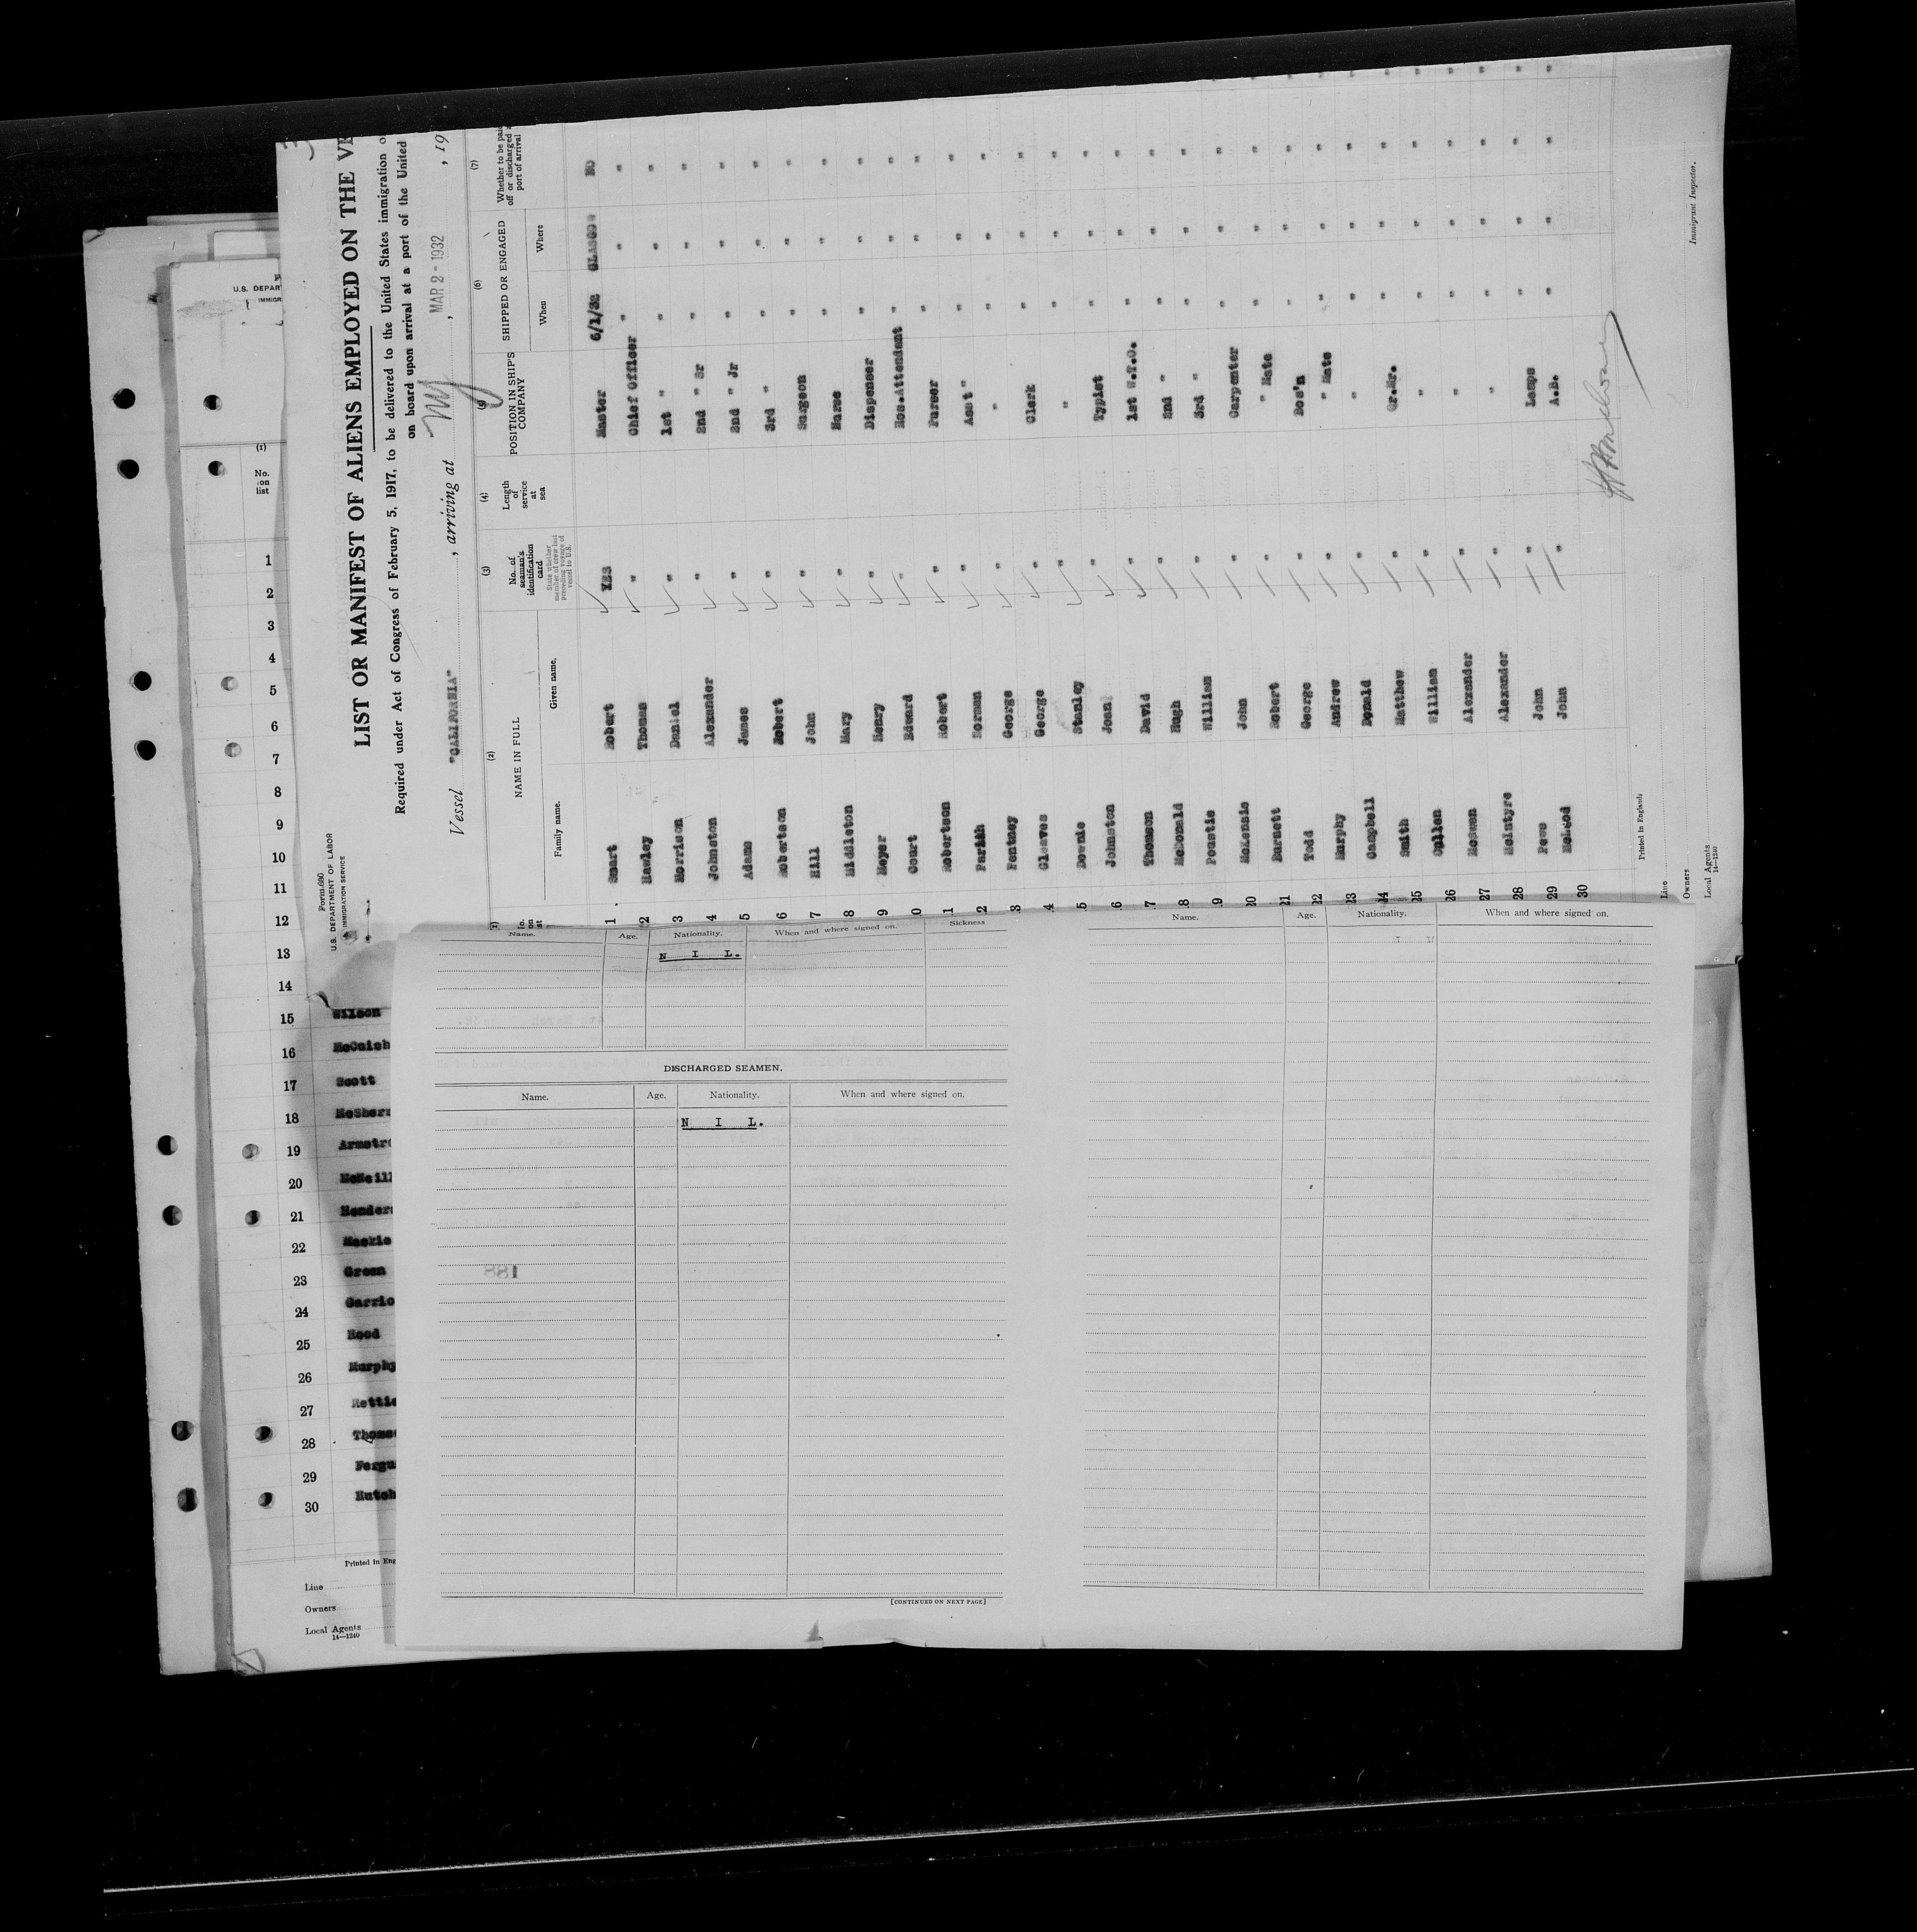 Form 680
U.S. DEPARTMENT OF LABOR
IMMIGRATION SERVICE
LIST OR MANIFEST OF ALIENS EMPLOYED ON THE
Required under Act of Congress of February 5, 1917, to be delivered to the United States immigration
on board upon arrival at a port of the United
Vessel "CALIFORNIA", arriving at NY, MAR 2 - 1932, 19
(2) (3) (4) (5) (6) (7)
NAME IN FULL
Family name. Given name.
No. of seaman's identification card
State whether member of crew last preceding voyage of vessel to U.S.
Length of service at sea
POSITION IN SHIP'S COMPANY
SHIPPED OR ENGAGED
When Where
Whether to be paid off or discharged at port of arrival
1 Smart Robert YES Master 6/1/32 GLASGOW NO
2 Hawley Thomas " Chief Officer " " "
3 Morrison Daniel " 1st " " " "
4 Johnston Alexander " 2nd " Sr " " "
5 Adams James " 2nd " Jr " " "
6 Robertson Robert " 3rd " " " "
7 Hill John " Surgeon " " "
8 Middleton Mary " Nurse " " "
9 Meyer Henry " Dispenser " " "
0 Court Edward " Hos.Attendant " " "
1 Robertson Robert " Purser " " "
2 Parish Norman " Asst " " " "
3 Pentney George " " " " "
4 Gleaves George " Clerk " " "
5 Downie Stanley " " " " "
6 Johnston Joan " Typist " " "
7 Thomson David " 1st W.T.O. " " "
8 McDonald Hugh " 2nd " " " "
9 Poustie William " 3rd " " " "
20 McKensie John " Carpenter " " "
21 Barnett Robert " " Mate " " "
22 Todd George " Bos'n " " "
23 Murphy Andrew " " Mate " " "
24 Campbell Donald " " " " "
25 Smith Matthew " Qr.Mr. " " "
26 Cullen William " " " " "
27 McEwen Alexander " " " " "
28 McIntyre Alexander " " " " "
29 Pews John " Lamps " " "
30 McLeod John " A.B. " " "
Printed in England
Line
Owners
Local Agents
14—1240
Immigrant Inspector.
U.S. DEPAR
IMMIGR
(1)
No. on list
1
2
3
4
5
6
7
8
9
10
11
12
13
14
15 Wilson
16 McCuish
17 Scott
18 McSherr
19 Armstro
20 McNeill
21 Henders
22 Mackie
23 Green
24 Garrio
25 Hood
26 Murphy
27 Rettie
28 Thomso
29 Fergu
30 Hutch
Printed in Eng
Line
Owners
Local Agents
14—1240
Name. Age. Nationality. When and where signed on. Sickness
N I L.
DISCHARGED SEAMEN.
Name. Age. Nationality. When and where signed on.
N I L.
188
[CONTINUED ON NEXT PAGE]
Name. Age. Nationality. When and where signed on.